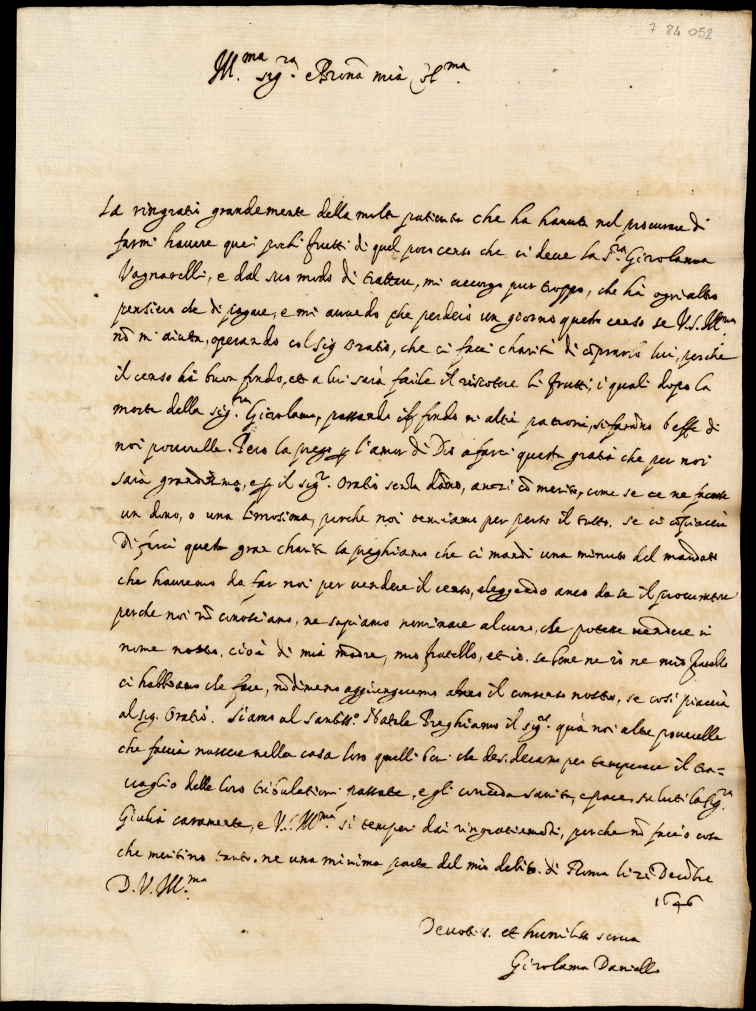 7 84 052
Ill.ma sig.ra e Prona mia Col.ma
La ringratio grandemente della molta patienta che ha havuta nel procurare di
farmi havere quei pochi frutti di quel poco censo che ci deve la S.ra Girolama
Vagnarelli, e dal suo modo di trattare, mi accorgo pur troppo, che hà ogni altro
pensiero che di pagare, e mi avvedo che perderò un giorno questo censo se V.S. Ill.ma
nõ m'aiuta, operando col Sig Oratio, che ci facci charità di cõprarlo lui, perche
il censo hà buon fondo, et a lui sarà facile il riscotere li frutti, i quali dopo la
morte della sig.ra Girolama, passando il fondo in altri patroni, si farãno beffe di
noi poverelle. Pero la prego p l'amor di Dio a farci questa gratia che per noi
sarà grandissima, e p il sig.r Oratio senza dãno, anzi cõ merito, come se ce ne facesse
un dono, o una limosina, perche noi teniamo per perso il tutto. se ci cõpiacerà
di farci questa gran charità la preghiamo che ci mandi una minuta del mandato
che haveremo da far noi per vendere il censo, eleggendo anco da se il procuratore
perche noi nõ conosciamo, ne sapiamo nominare alcuno, che potesse vendere in
nome nostro, cioè di mia madre, mio fratello, et io. se bene ne io ne mio fratello
ci habbiamo che fare, nõdimeno aggiungeremo anco il consenso nostro, se così piacerà
al sig. Oratio. Siamo al santiss.o Natale Preghiamo il sig.re quà noi altre poverelle
che faccia nascere nella casa loro quelli beni che desiderano per temperare il tra=
vaglio delle loro tribulationi passate, e gli conceda sanità, e pace, saluti la Sig.ra
Giulia caramente, e V.S. Ill.ma si temperi dai ringratiamẽti, perche nõ faccio cosa
che meritino tanto, ne una minima parte del mio debito. di Roma li 21 Decẽbre
1646
D. V. Ill.ma
Devotis. et humiliss serva
Girolama Danielli